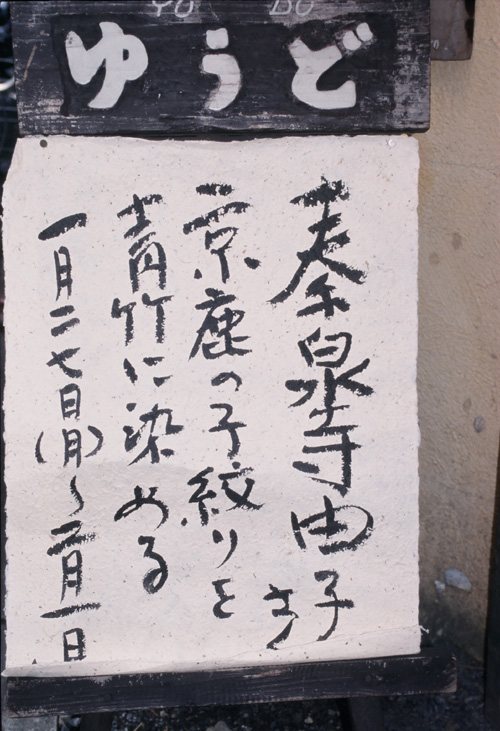 YU DO
ゆうど
秦泉寺由子さん
京鹿の子絞りを
青竹に染める
一月二七日(月)〜二月一日